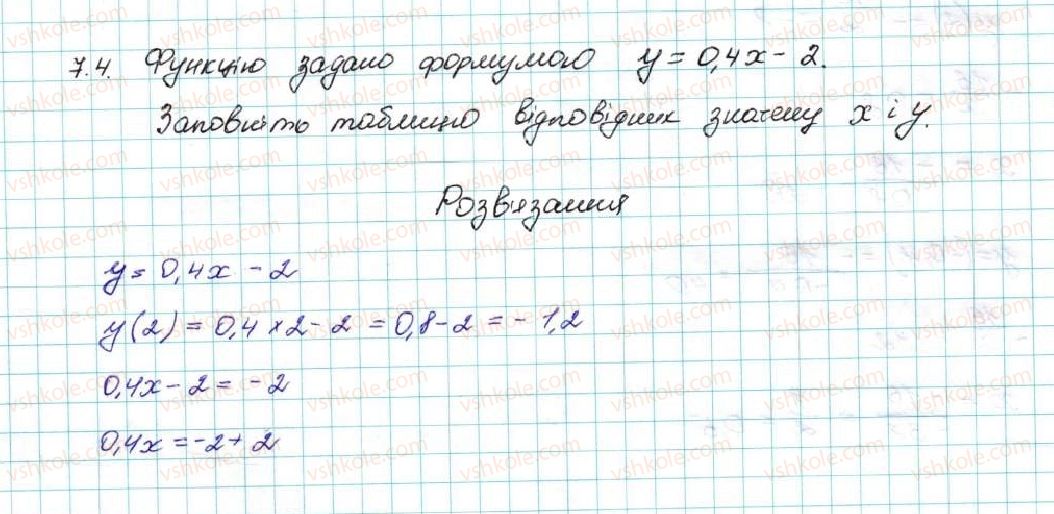 7.4. Функцію задано формулою y = 0,4x - 2.
Заповніть таблицю відповідних значень x і y.
Розв'язання
y = 0,4x - 2
y(2) = 0,4 × 2 - 2 = 0,8 - 2 = - 1,2
0,4x - 2 = - 2
0,4x = -2 + 2